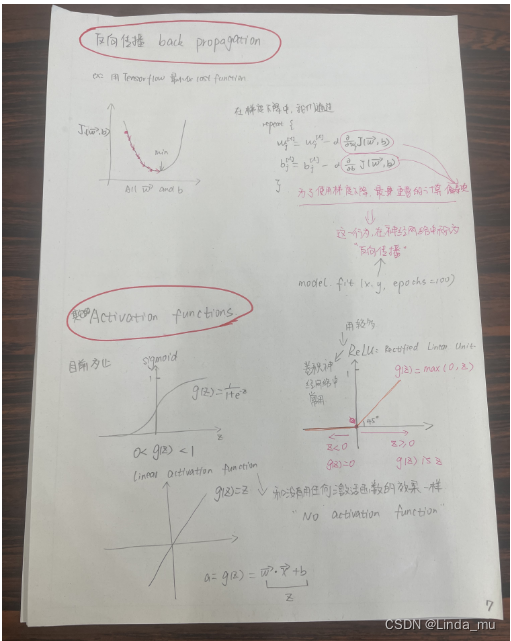 反向传播 back propagation
用 Tensorflow 最小化 cost function
J(w,b)
min
All w and b
在梯度下降中，我们通过
repeat {
w_j = w_j - α ∂/∂w_j J(w,b)
b_j = b_j - α ∂/∂b J(w,b)
}
为了使用梯度下降，最重要的
这一行为，在神经网络中称为
"反向传播"
model.fit(x,y,epochs=100)
Activation functions
目前为止
sigmoid
1
g(z)=1/1+e^-z
z
0<g(z)<1
ReLU: Rectified Linear Unit
g(z)=max(0,z)
1
45°
z<0
z≥0
g(z)=0
g(z) is z
linear activation function
和没有用任何激活函数的效果一样
"No activation function"
g(z)=z
a=g(z)=w·x+b
z
7
CSDN @Linda_mu